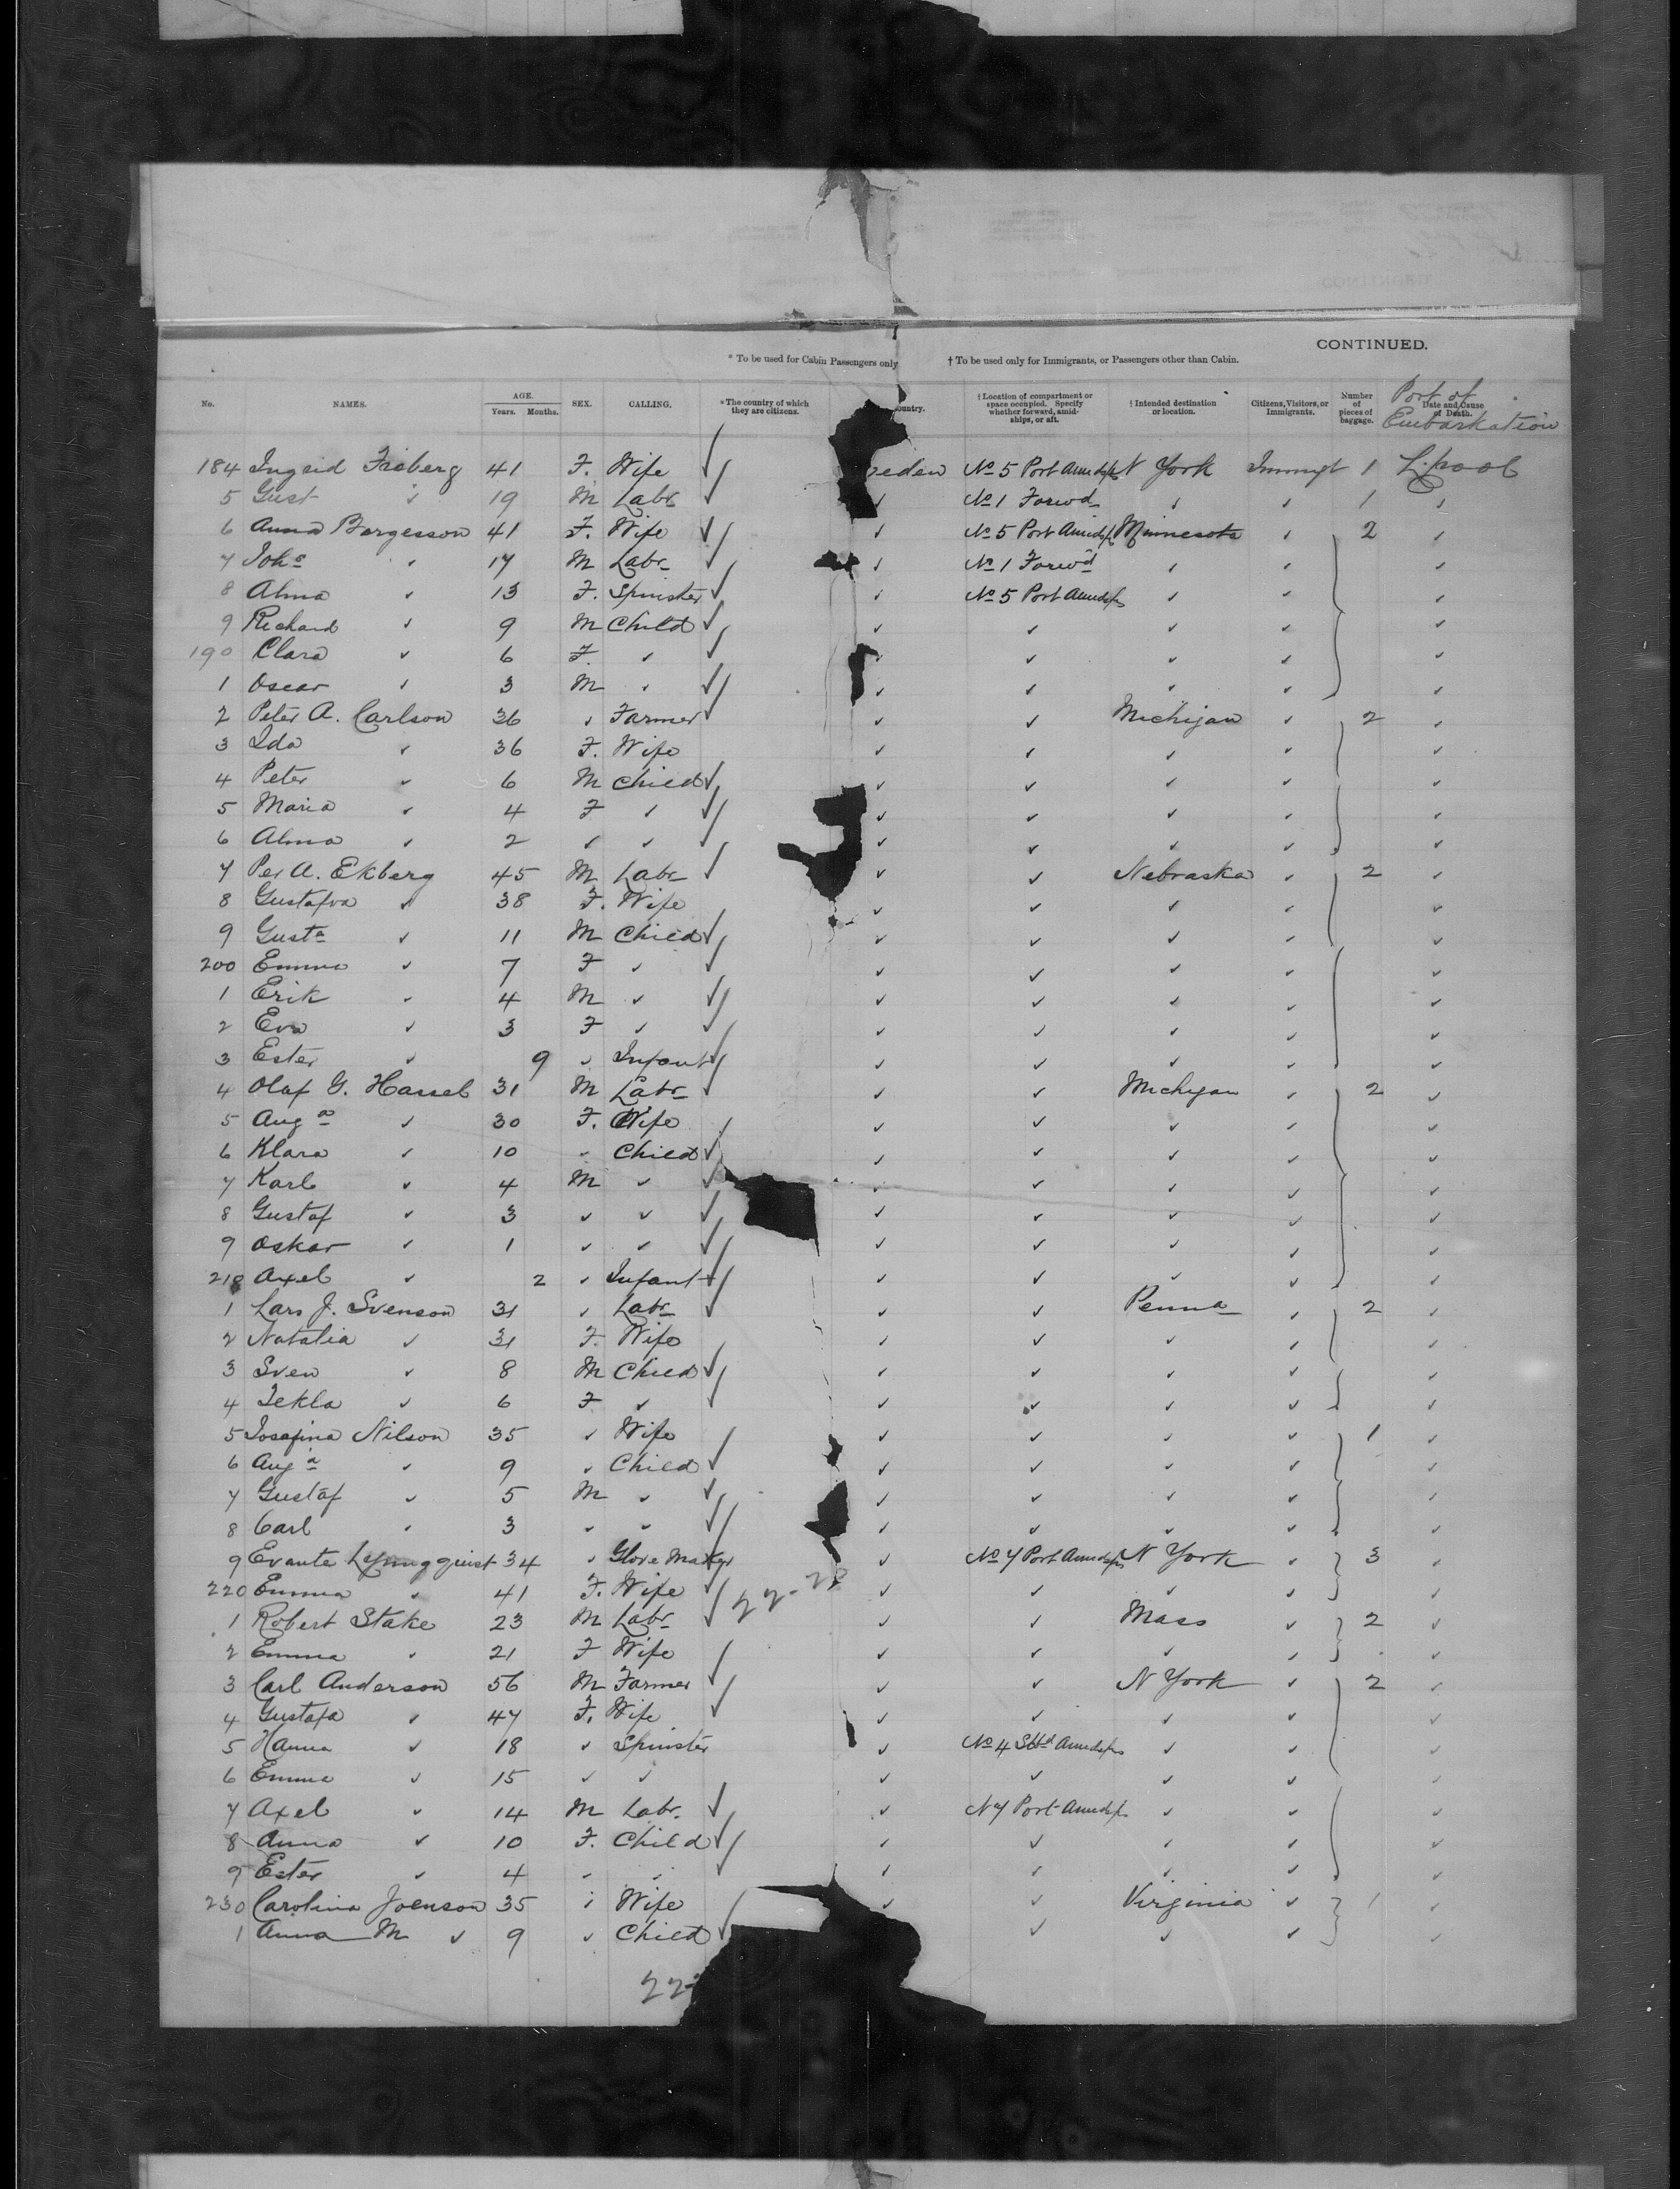 CONTINUED.
* To be used for Cabin Passengers only † To be used only for Immigrants, or Passengers other than Cabin.
No. NAMES. AGE. Years. Months. SEX. CALLING. *The country of which they are citizens. ountry. †Location of compartment or space occupied. Specify whether forward, amidships, or aft. †Intended destination or location. Citizens, Visitors, or Immigrants. Number of pieces of baggage. Date and Cause of Death. Port of Embarkation
184 Ingrid Friberg 41 F. Wife ✓ eden No 5 Port Amidsps N York Immigt 1 L.pool
5 Gust ✓ 19 M Labr ✓ ✓ No 1 Forwd ✓ ✓ 1 ✓
6 Anna Borgesson 41 F. Wife ✓ ✓ No 5 Port Amidsps Minnesota ✓ 2 ✓
7 Johs ✓ 17 M Labr ✓ ✓ No 1 Forwd ✓ ✓ ✓
8 Alma ✓ 13 F. Spinster ✓ ✓ No 5 Port Amidsps ✓ ✓ ✓
9 Richard ✓ 9 M Child ✓ ✓ ✓ ✓ ✓ ✓
190 Clara ✓ 6 F. ✓ ✓ ✓ ✓ ✓ ✓ ✓
1 Oscar ✓ 3 M ✓ ✓ ✓ ✓ ✓ ✓ ✓
2 Peter A. Carlson 36 ✓ Farmer ✓ ✓ ✓ Michigan ✓ 2 ✓
3 Ida ✓ 36 F. Wife ✓ ✓ ✓ ✓ ✓
4 Peter ✓ 6 M Child ✓ ✓ ✓ ✓ ✓ ✓
5 Maria ✓ 4 F ✓ ✓ ✓ ✓ ✓ ✓ ✓
6 Alma ✓ 2 ✓ ✓ ✓ ✓ ✓ ✓ ✓ ✓
7 Per A. Ekberg 45 M Labr ✓ ✓ ✓ Nebraska ✓ 2 ✓
8 Gustafva ✓ 38 F. Wife ✓ ✓ ✓ ✓ ✓
9 Gusta ✓ 11 M Child ✓ ✓ ✓ ✓ ✓ ✓
200 Emma ✓ 7 F ✓ ✓ ✓ ✓ ✓ ✓ ✓
1 Erik ✓ 4 M ✓ ✓ ✓ ✓ ✓ ✓ ✓
2 Eva ✓ 3 F ✓ ✓ ✓ ✓ ✓ ✓ ✓
3 Ester ✓ 9 ✓ Infant ✓ ✓ ✓ ✓ ✓ ✓
4 Olaf G. Hassel 31 M Labr ✓ ✓ ✓ Michigan ✓ 2 ✓
5 Auga ✓ 30 F. Wife ✓ ✓ ✓ ✓ ✓
6 Klara ✓ 10 ✓ Child ✓ ✓ ✓ ✓ ✓ ✓
7 Karl ✓ 4 M ✓ ✓ ✓ ✓ ✓ ✓ ✓
8 Gustaf ✓ 3 ✓ ✓ ✓ ✓ ✓ ✓ ✓ ✓
9 Oskar ✓ 1 ✓ ✓ ✓ ✓ ✓ ✓ ✓ ✓
210 Axel ✓ 2 ✓ Infant ✓ ✓ ✓ ✓ ✓ ✓
1 Lars J. Svenson 31 ✓ Labr ✓ ✓ ✓ Penna ✓ 2 ✓
2 Natalia ✓ 31 F. Wife ✓ ✓ ✓ ✓ ✓
3 Sven ✓ 8 M Child ✓ ✓ ✓ ✓ ✓ ✓
4 Tekla ✓ 6 F ✓ ✓ ✓ ✓ ✓ ✓ ✓
5 Josefina Nilson 35 ✓ Wife ✓ ✓ ✓ ✓ 1 ✓
6 Auga ✓ 9 ✓ Child ✓ ✓ ✓ ✓ ✓ ✓
7 Gustaf ✓ 5 M ✓ ✓ ✓ ✓ ✓ ✓ ✓
8 Carl ✓ 3 ✓ ✓ ✓ ✓ ✓ ✓ ✓ ✓
9 Evante Ljungquist 34 ✓ Glove Maker ✓ No 7 Port Amidsps N York ✓ 3 ✓
220 Emma ✓ 41 F. Wife ✓ ✓ ✓ ✓ ✓ ✓
1 Robert Stake 23 M Labr ✓ ✓ ✓ Mass ✓ 2 ✓
2 Emma ✓ 21 F Wife ✓ ✓ ✓ ✓ ✓
3 Carl Anderson 56 M Farmer ✓ ✓ ✓ N York ✓ 2 ✓
4 Gustafa ✓ 47 F. Wife ✓ ✓ ✓ ✓ ✓ ✓
5 Hanna ✓ 18 ✓ Spinster ✓ No 4 Stbd Amidsps ✓ ✓ ✓
6 Emma ✓ 15 ✓ ✓ ✓ ✓ ✓ ✓ ✓
7 Axel ✓ 14 M Labr. ✓ ✓ No 7 Port Amidsps ✓ ✓ ✓
8 Anna ✓ 10 F. Child ✓ ✓ ✓ ✓ ✓ ✓
9 Ester ✓ 4 ✓ ✓ ✓ ✓ ✓ ✓ ✓ ✓
230 Carolina Joenson 35 ✓ Wife ✓ ✓ Virginia ✓ 1 ✓
1 Anna M ✓ 9 ✓ Child ✓ ✓ ✓ ✓ ✓
22